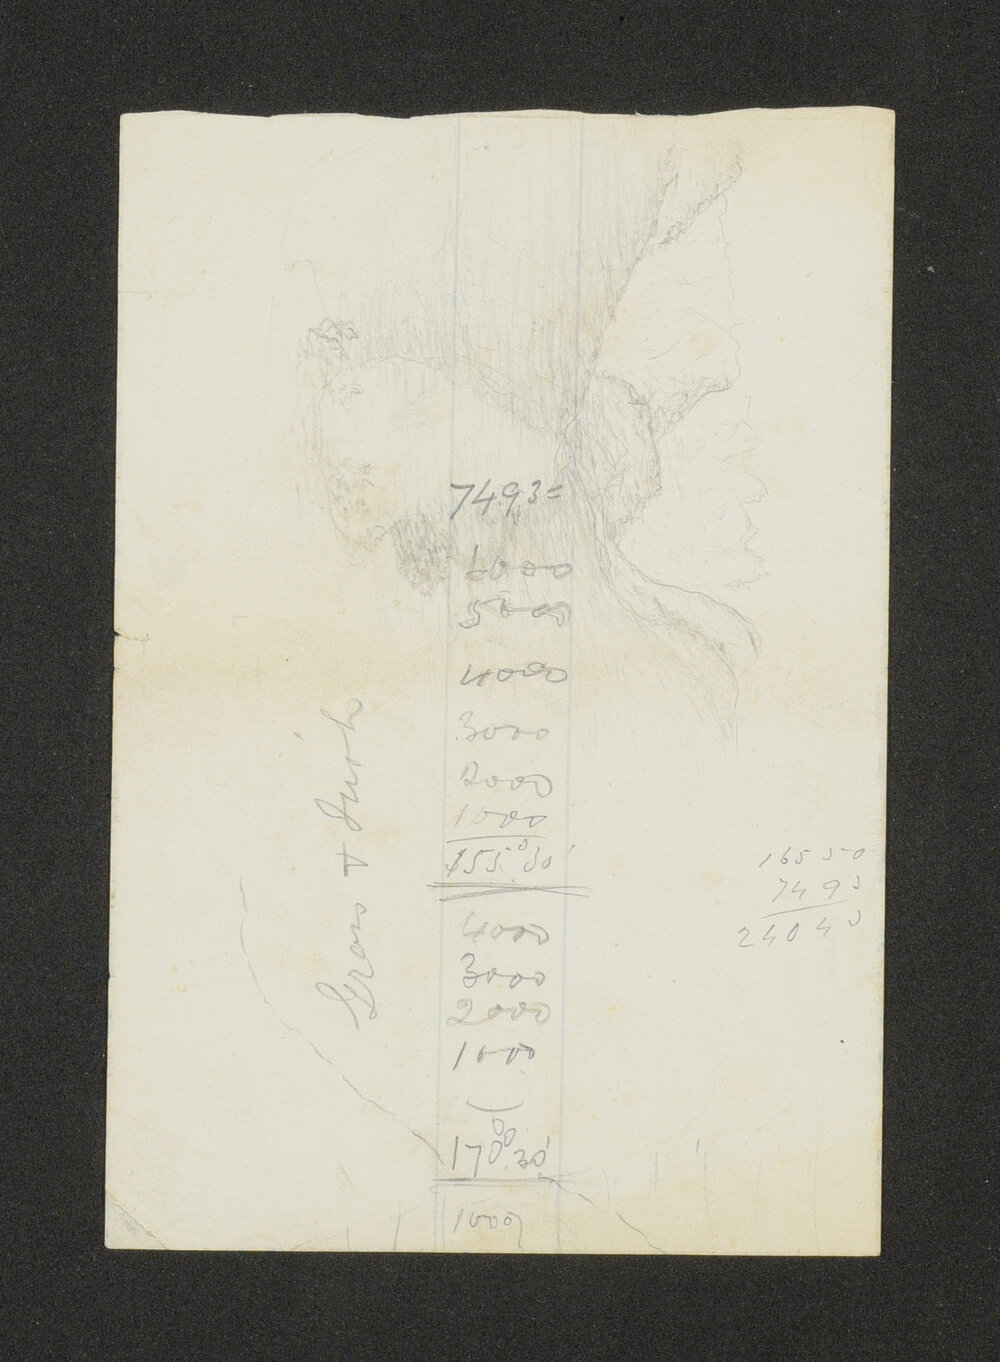 7493=
6000
5000
4000
3000
2000
1000
155°30'
4000
3000
2000
1000
170°30'
1000
Grass &
16550
7493
24043